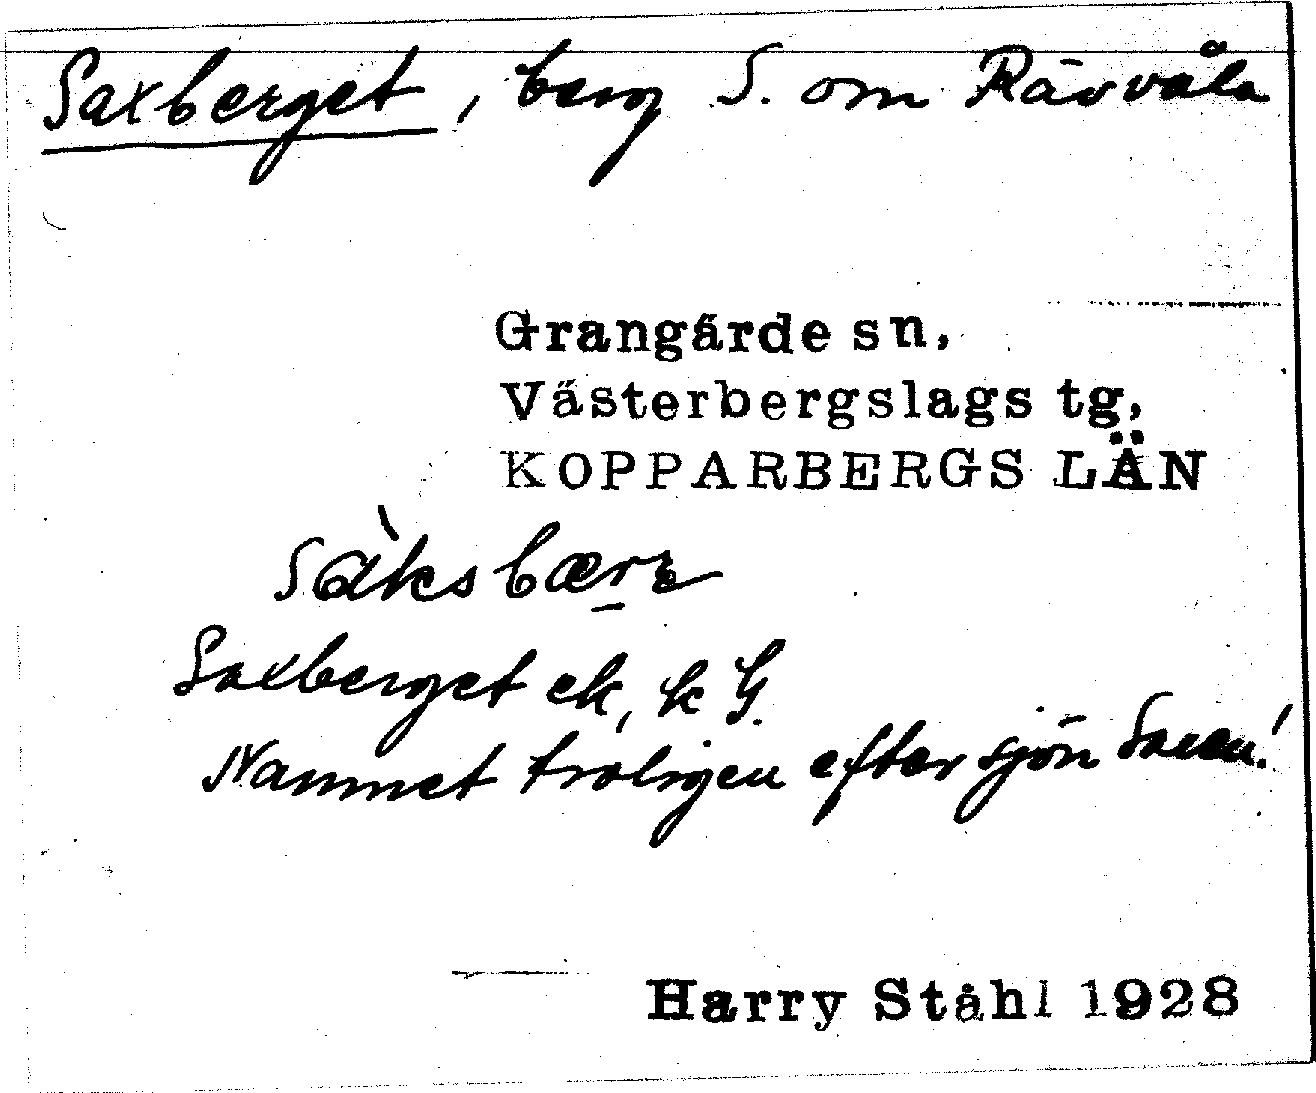 Saxberget, berg S. om Rävvåla
Grangärde sn,
Västerbergslags tg,
KOPPARBERGS LÄN
sàksbær̲ɛ
Saxberget ek, k G.
Namnet troligen efter sjön Saxen!
Harry Ståhl 1928